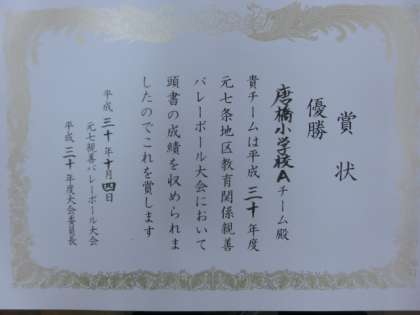 賞状
優勝
唐橋小学校Aチーム殿
貴チームは平成三十年度
元七条地区教育関係親善
バレーボール大会において
頭書の成績を収められま
したのでこれを賞します
平成三十年十月四日
元七親善バレーボール大会
平成三十年度大会委員長